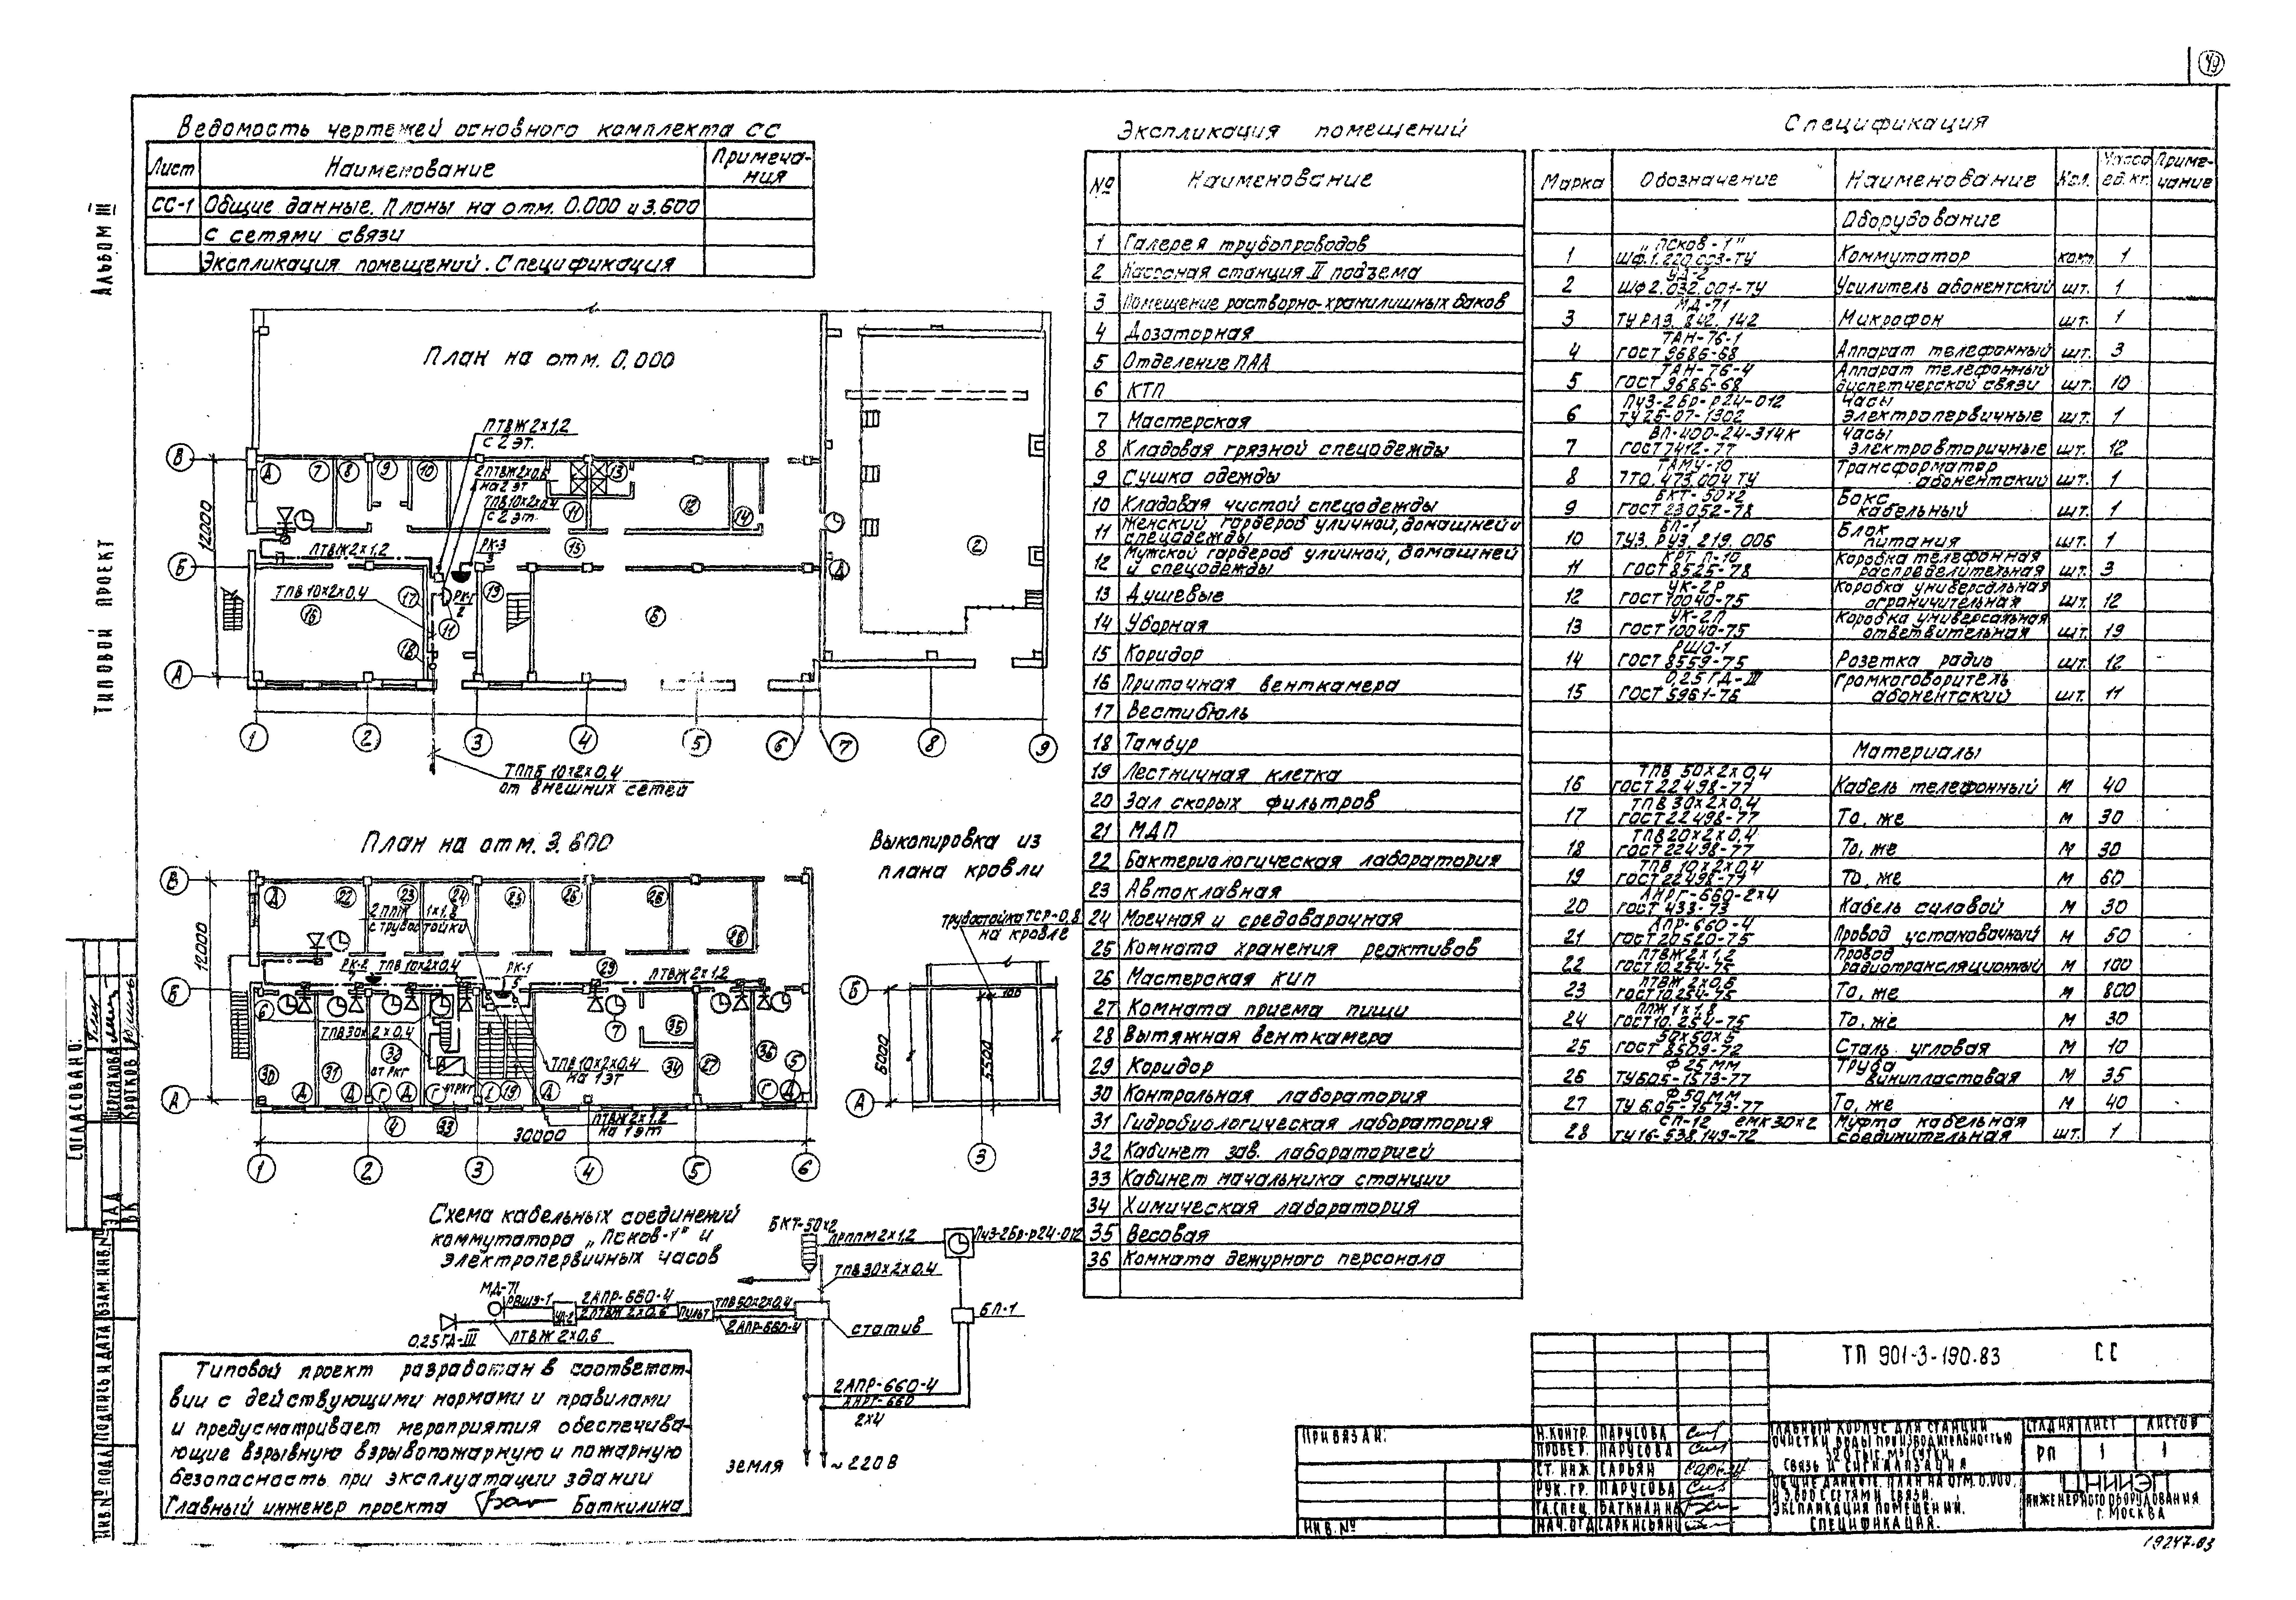 49
Ведомость чертежей основного комплекта СС
Лист Наименование Примеча-
ния
СС-1 Общие данные. Планы на отм. 0.000 и 3.600
с сетями связи
Экспликация помещений. Спецификация
Альбом III
Типовой проект
План на отм. 0.000
ПТВЖ 2×1,2
с 2 эт.
2ПТВЖ 2×0,6
на 2 эт
ТПВ 10×2×0,4
с 2 эт.
ПТВЖ 2×1,2
РК-3
ТПВ 10×2×0,4
12000
В
Б
А
1 2 3 4 5 6 7 8 9
ТППБ 10×2×0,4
от внешних сетей
План на отм. 3.600
2 ППЖ 1×1,8
с трубостойки
РК-2 ТПВ 10×2×0,4
РК-1
ПТВЖ 2×1,2
ТПВ 30×2×0,4
ТПВ 10×2×0,4
на 1 эт
ПТВЖ 2×1,2
на 1 эт
12000
30000
В
Б
А
1 2 3 4 5 6
Выкопировка из
плана кровли
трубостойка ТСР-0,8
на кровле
100
6000
5500
Б
А
3
Схема кабельных соединений
коммутатора „Псков-1" и
электропервичных часов
БКТ-50×2
ПРППМ 2×1,2
ПЧЗ-2Бр-р24-012
ТПВ 30×2×0,4
МД-71
РВШЭ-1
2АПР-660-4
2ПТВЖ 2×0,6
УД-2
Пульт
ТПВ 50×2×0,4
2АПР-660-4
статив
БП-1
0,25ГД-III
ПТВЖ 2×0,6
2АПР-660-4
АНРГ-660
2×4
земля
~220В
Типовой проект разработан в соответст-
вии с действующими нормами и правилами
и предусматривает мероприятия обеспечива-
ющие взрывную взрывопожарную и пожарную
безопасность при эксплуатации здании
Главный инженер проекта Баткилина
Экспликация помещений
№ Наименование
1 Галерея трубопроводов
2 Насосная станция II подъема
3 Помещение растворно-хранилищных баков
4 Дозаторная
5 Отделение ПАА
6 КТП
7 Мастерская
8 Кладовая грязной спецодежды
9 Сушка одежды
10 Кладовая чистой спецодежды
11 Женский гардероб уличной, домашней и
спецодежды
12 Мужской гардероб уличной, домашней
и спецодежды
13 Душевые
14 Уборная
15 Коридор
16 Приточная венткамера
17 Вестибюль
18 Тамбур
19 Лестничная клетка
20 Зал скорых фильтров
21 МДП
22 Бактериологическая лаборатория
23 Автоклавная
24 Моечная и средоварочная
25 Комната хранения реактивов
26 Мастерская КИП
27 Комната приема пищи
28 Вытяжная венткамера
29 Коридор
30 Контрольная лаборатория
31 Гидробиологическая лаборатория
32 Кабинет зав. лабораторией
33 Кабинет начальника станции
34 Химическая лаборатория
35 Весовая
36 Комната дежурного персонала
Спецификация
Марка Обозначение Наименование Кол. Масса ед. кг. Приме-
чание
Оборудование
1 „Псков-1" ШФ.1.220.003-ТУ Коммутатор комп. 1
2 УД-2 ШФ2.032.001-ТУ Усилитель абонентский шт. 1
3 МД-71 ТУ РЛЗ. 842. 142 Микрофон шт. 1
4 ТАН-76-1 ГОСТ 9686-68 Аппарат телефонный шт. 3
5 ТАН-76-4 ГОСТ 9686-68 Аппарат телефонный диспетчерской связи шт. 10
6 ПЧЗ-2Бр-р24-012 ТУ25-07-1302 Часы электропервичные шт. 1
7 ВП-400-24-314К ГОСТ 7412-77 Часы электровторичные шт. 12
8 ТАМУ-10 7ТО.473.004 ТУ Трансформатор абонентский шт. 1
9 БКТ-50×2 ГОСТ 23052-78 Бокс кабельный шт. 1
10 БП-1 ТУЗ. РУЗ. 219. 006 Блок питания шт. 1
11 КРТП-10 ГОСТ 8525-78 Коробка телефонная распределительная шт. 3
12 УК-2Р ГОСТ 10040-75 Коробка универсальная ограничительная шт. 12
13 УК-2П ГОСТ 10040-75 Коробка универсальная ответвительная шт. 19
14 РШО-1 ГОСТ 8559-75 Розетка радио шт. 12
15 0,25 ГД-III ГОСТ 5961-76 Громкоговоритель абонентский шт. 11
Материалы
16 ТПВ 50×2×0,4 ГОСТ 22498-77 Кабель телефонный М 40
17 ТПВ 30×2×0,4 ГОСТ 22498-77 То, же М 30
18 ТПВ 20×2×0,4 ГОСТ 22498-77 То, же М 30
19 ТПВ 10×2×0,4 ГОСТ 22498-77 То, же М 60
20 АНРГ-660-2×4 ГОСТ 433-73 Кабель силовой М 30
21 АПР-660-4 ГОСТ 20520-75 Провод установочный М 50
22 ПТВЖ 2×1,2 ГОСТ 10.254-75 Провод радиотрансляционный М 100
23 ПТВЖ 2×0,6 ГОСТ 10.254-75 То, же М 800
24 ППЖ 1×1,8 ГОСТ 10.254-75 То, же М 30
25 50×50×5 ГОСТ 8509-72 Сталь угловая М 10
26 Ф 25 мм ТУ6.05-1573-77 Труба винипластовая М 35
27 Ф 50 мм ТУ 6.05-1573-77 То, же М 40
28 СП-12 емк 30×2 ТУ16-538.149-72 Муфта кабельная соединительная шт. 1
ТП 901-3-190.83 СС
Привязан:
Инв.№
Н.контр. Парусова
Провер. Парусова
Ст. инж Сарьян
Рук. гр. Парусова
Гл.спец. Баткилина
Нач.отд Саркисьян
Главный корпус для станции
очистки воды производительностью
Связь и сигнализация
Общие данные. План на отм. 0.000.
и 3.600 с сетями связи.
Экспликация помещений.
Спецификация.
Стадия Лист Листов
РП 1 1
ЦНИИЭП
инженерного оборудования
г. Москва
19247-03
Согласовано:
Кротков
Инв.№ подл Подпись и дата Взам.инв.№